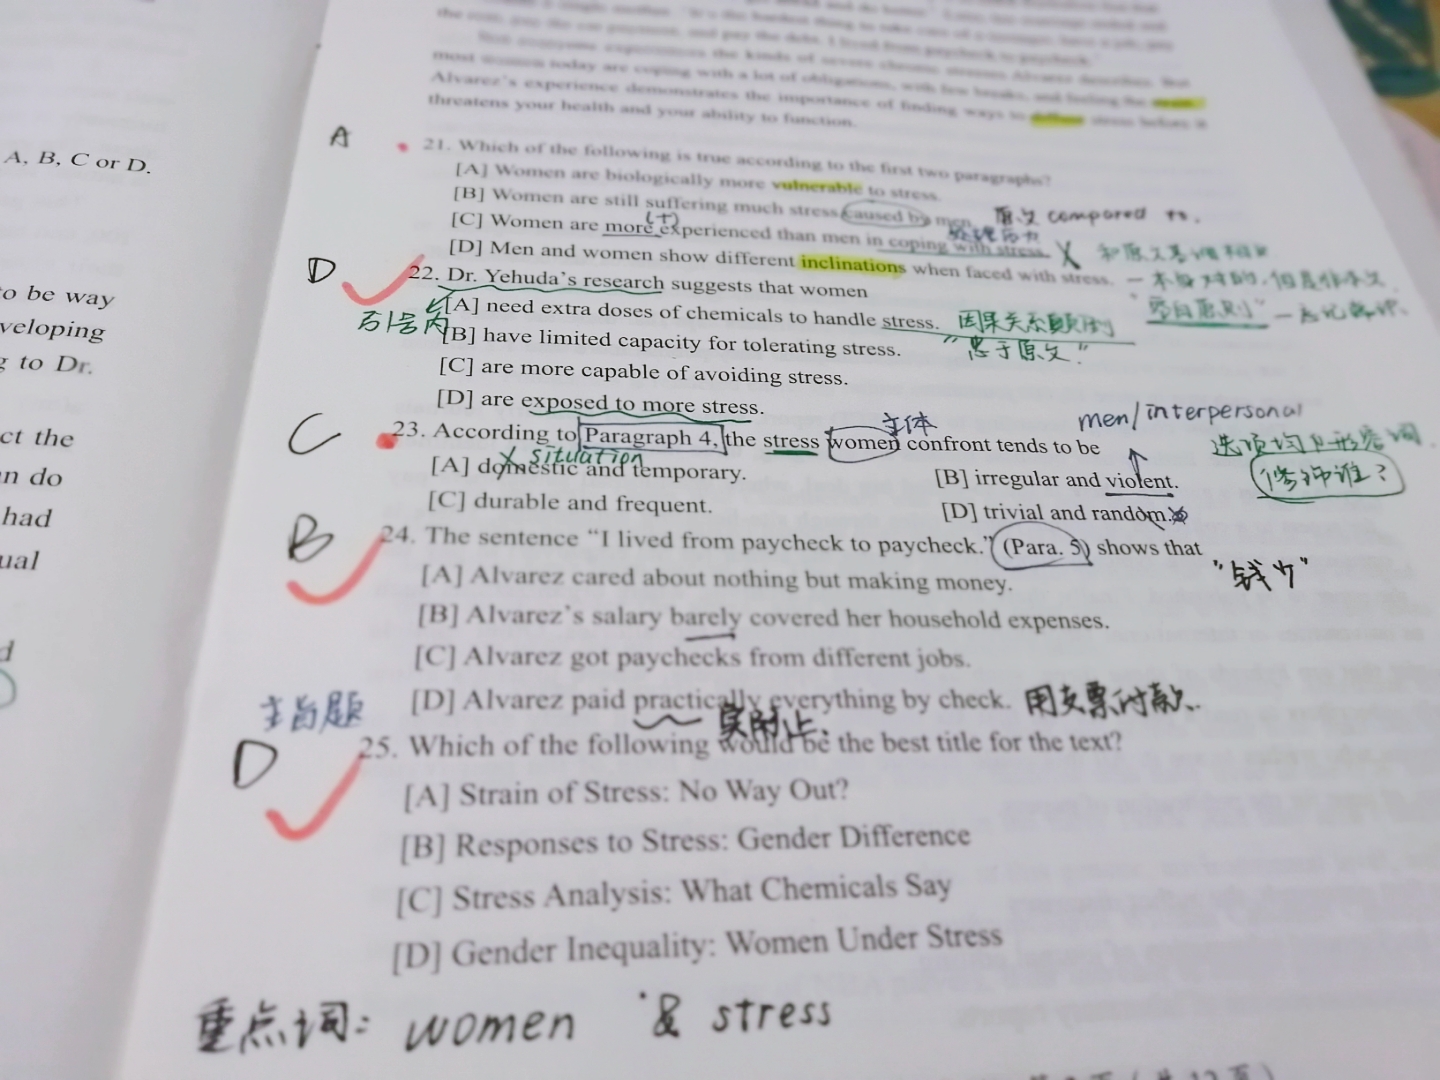 A, B, C or D.
o be way
veloping
g to Dr.
ct the
n do
had
ual
d
most women today are coping with a lot of obligations, with few breaks, and feeling the strain.
Alvarez's experience demonstrates the importance of finding ways to diffuse stress before it
threatens your health and your ability to function.
A
21. Which of the following is true according to the first two paragraphs?
[A] Women are biologically more vulnerable to stress.
[B] Women are still suffering much stress caused by men.
原文 compared to.
[C] Women are more experienced than men in coping with stress.
(+)
处理压力
X
[D] Men and women show different inclinations when faced with stress.
D
22. Dr. Yehuda's research suggests that women
引号内
[A] need extra doses of chemicals to handle stress.
因果关系颠倒
[B] have limited capacity for tolerating stress.
"忠于原文"
[C] are more capable of avoiding stress.
[D] are exposed to more stress.
C
23. According to Paragraph 4, the stress women confront tends to be
主体
men/interpersonal
X situation
[A] domestic and temporary.
[B] irregular and violent.
选项均为形容词
修饰谁?
[C] durable and frequent.
[D] trivial and random.
B
24. The sentence "I lived from paycheck to paycheck." (Para. 5) shows that
[A] Alvarez cared about nothing but making money.
[B] Alvarez's salary barely covered her household expenses.
[C] Alvarez got paychecks from different jobs.
[D] Alvarez paid practically everything by check.
用支票付款.
主旨题
D
25. Which of the following would be the best title for the text?
[A] Strain of Stress: No Way Out?
[B] Responses to Stress: Gender Difference
[C] Stress Analysis: What Chemicals Say
[D] Gender Inequality: Women Under Stress
重点词: women & stress